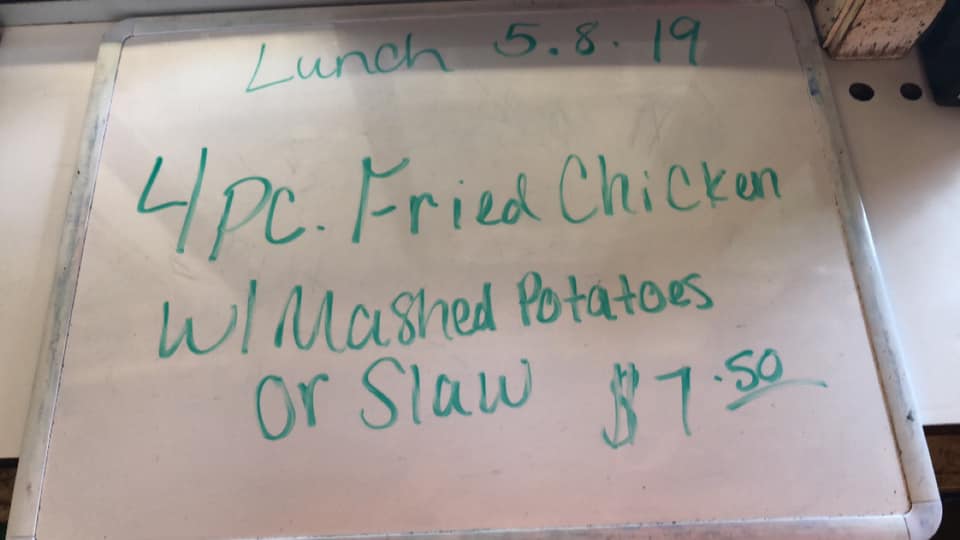 Lunch 5.8.19
4 pc. Fried Chicken
w/ Mashed Potatoes
or Slaw $7.50